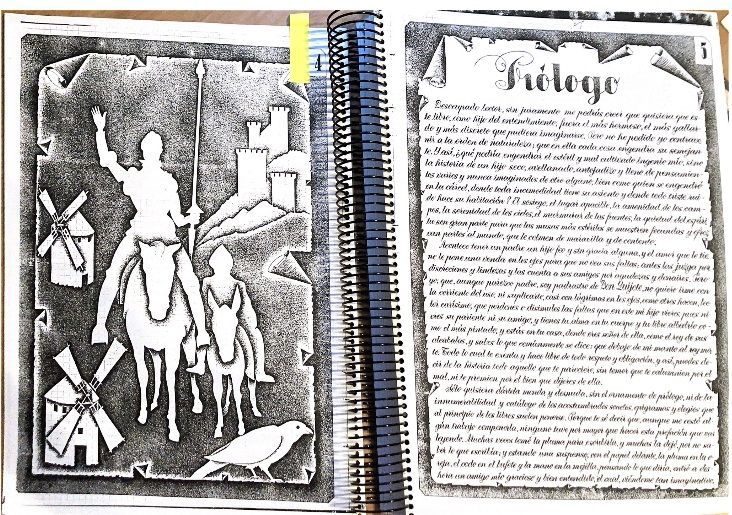 4
5
Prólogo
Desocupado lector, sin juramento me podrás creer que quisiera que es-
te libro, como hijo del entendimiento, fuera el más hermoso, el más gallar-
do y más discreto que pudiera imaginarse. Pero no he podido yo contrave-
nir a la orden de naturaleza; que en ella cada cosa engendra su semejan-
te. Y así, ¿qué podría engendrar el estéril y mal cultivado ingenio mío, sino
la historia de un hijo seco, avellanado, antojadizo y lleno de pensamien-
tos varios y nunca imaginados de otro alguno, bien como quien se engendró
en la cárcel, donde toda incomodidad tiene su asiento y donde todo triste rui-
do hace su habitación? El sosiego, el lugar apacible, la amenidad de los cam-
pos, la serenidad de los cielos, el murmurar de las fuentes, la quietud del espíri-
tu son gran parte para que las musas más estériles se muestren fecundas y ofrez-
can partos al mundo, que le colmen de maravilla y de contento.
Acontece tener un padre un hijo feo y sin gracia alguna, y el amor que le tie-
ne le pone una venda en los ojos para que no vea sus faltas; antes las juzga por
discreciones y lindezas y las cuenta a sus amigos por agudezas y donaires. Pero
yo, que, aunque parezco padre, soy padrastro de Don Quijote, no quiero irme con
la corriente del uso, ni suplicarte, casi con lágrimas en los ojos, como otros hacen, lec-
tor carísimo, que perdones o disimules las faltas que en este mi hijo vieres; pues ni
eres su pariente ni su amigo, y tienes tu alma en tu cuerpo y tu libre albedrío co-
mo el más pintado, y estás en tu casa, donde eres señor de ella, como el rey de sus
alcabalas, y sabes lo que comúnmente se dice: que debajo de mi manto al rey ma-
to. Todo lo cual te exenta y hace libre de todo respeto y obligación, y así, puedes de-
cir de la historia todo aquello que te pareciere, sin temor que te calumnien por el
mal, ni te premien por el bien que dijeres de ella.
Sólo quisiera dártela monda y desnuda, sin el ornamento de prólogo, ni de la
innumerabilidad y catálogo de los acostumbrados sonetos, epigramas y elogios que
al principio de los libros suelen ponerse. Porque te sé decir que, aunque me costó al-
gún trabajo componerla, ninguno tuve por mayor que hacer esta prefación que vas
leyendo. Muchas veces tomé la pluma para escribirla, y muchas la dejé, por no sa-
ber lo que escribiría; y estando una suspenso, con el papel delante, la pluma en la o-
reja, el codo en el bufete y la mano en la mejilla, pensando lo que diría, entró a des-
hora un amigo mío gracioso y bien entendido, el cual, viéndome tan imaginativo,